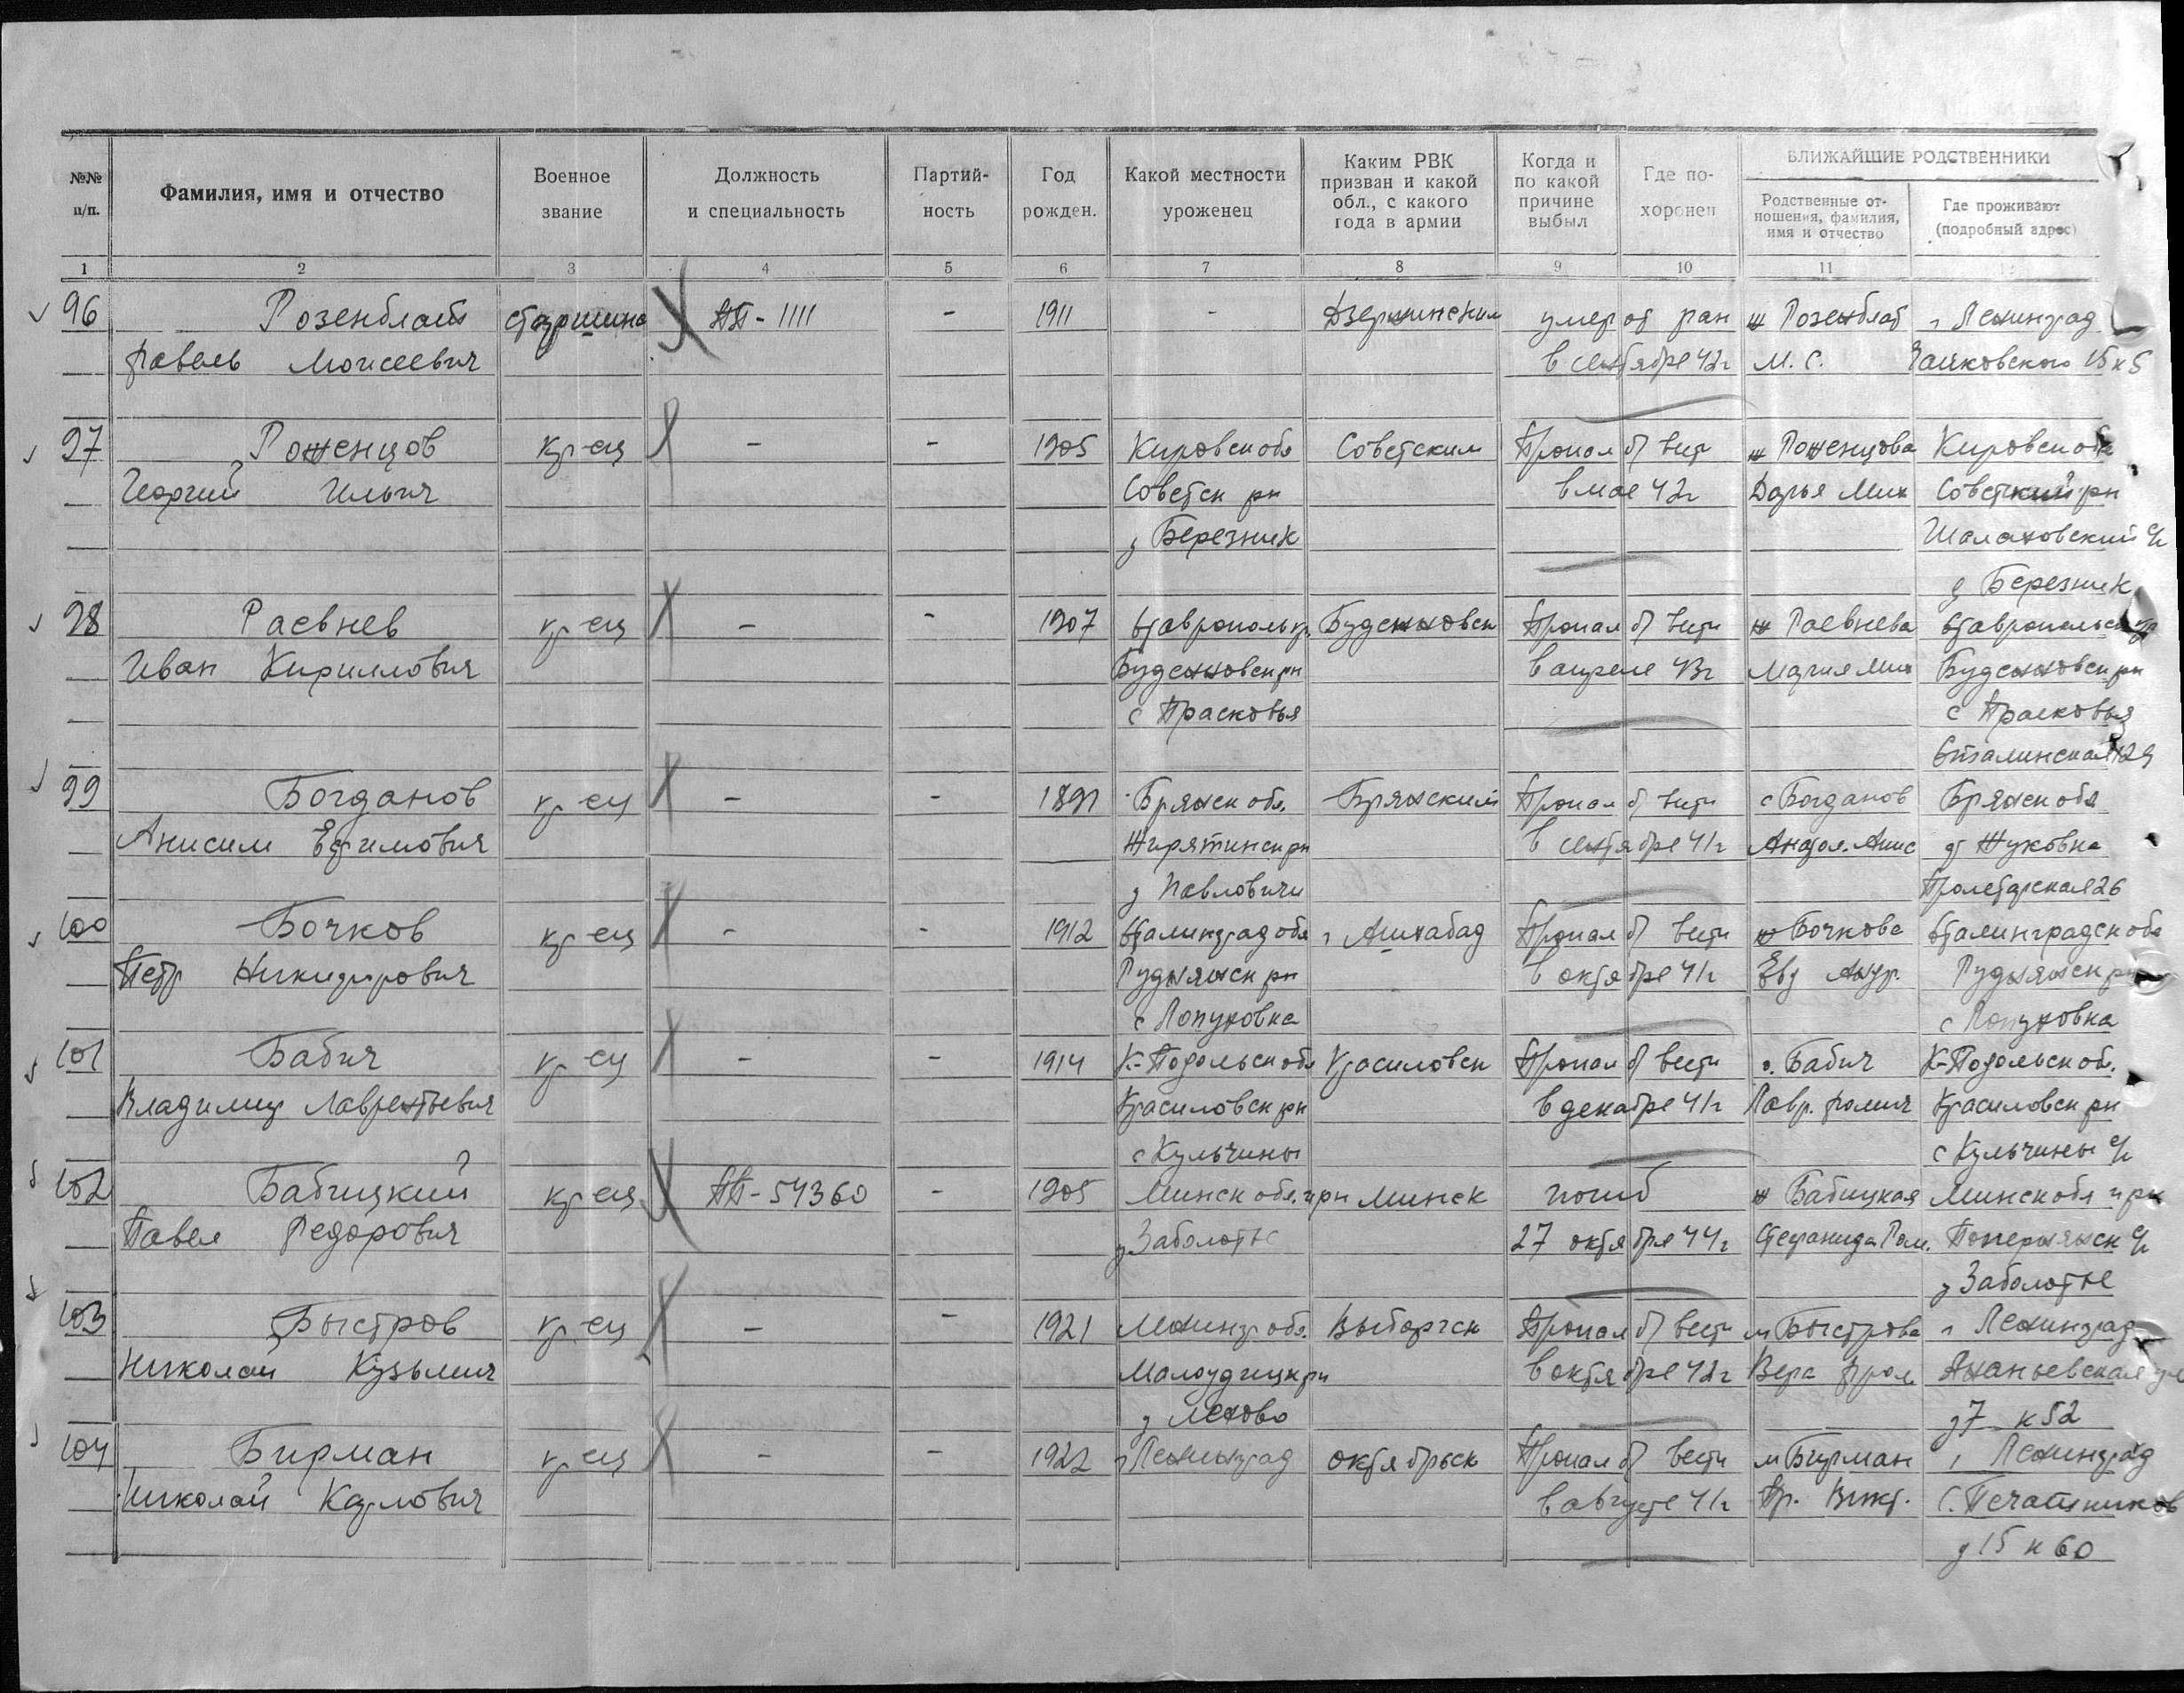 №№ п/п.
Фамилия, имя и отчество
Военное звание
Должность и специальность
Партий-ность
Год рожден.
Какой местности уроженец
Каким РВК призван и какой обл., с какого года в армии
Когда и по какой причине выбыл
Где по-хоронен
БЛИЖАЙШИЕ РОДСТВЕННИКИ
Родственные от-ношения, фамилия, имя и отчество
Где проживают (подробный адрес)
1 2 3 4 5 6 7 8 9 10 11
96 Розенблат старшина ПП-1111 - 1911 - Дзержинским умер от ран ж Розенблат г Ленинград
Павель Моисеевич в сентябре 42г М. С. Чайковского 15 к 5
97 Роженцов кр-ец - - 1905 Кировск обл Советским Пропал б/вести ж Роженцова Кировск обл
Георгий Ильич Советск рн в мае 42г Дарья Мих Советский рн
д Березник Шалаховский с/с
д Березник
98 Раевнев кр-ец - - 1907 Ставрополь кр. Буденновск Пропал б/вести ж Раевнева Ставропольск кр
Иван Кириллович Буденновск рн в апреле 43г Мария Мих Буденновск рн
с Прасковья с Прасковья
Сталинская 129
99 Богданов кр-ец - - 1897 Брянск обл. Брянским Пропал б/вести с Богданов Брянск обл
Анисим Ефимович Жирятинск рн в сентябре 41г Анатол. Анис г Жуковка
д Павловичи Пролетарская 26
100 Бочков кр-ец - - 1912 Сталинград обл г Ашхабад Пропал б/вести ж Бочкова Сталинградск обл
Петр Никифорович Руднянск рн в октябре 41г Евд Андр. Руднянск рн
с Лопуховка с Лопуховка
101 Бабич кр-ец - - 1914 К-Подольск обл Красиловск Пропал б/вести о. Бабич К-Подольск об.
Владимир Лаврентьевич Красиловск рн в декабре 41г Лавр. Фомич Красиловск рн
с Кульчины с Кульчины с/с
102 Бабицкий кр-ец ПП-54360 - 1905 Минск обл. и рн Минск погиб ж Бабицкая Минск обл и рн
Павел Федорович д Заболотье 27 октября 44г Стефанида Ром. с/с
д Заболотье
103 Быстров кр-ец - - 1921 Ленингр обл. Выборгск Пропал б/вести м Быстрова г Ленинград
Николай Кузьмич рн в октябре 42г Вера Фрол Ананьевская ул
д д 7 к 52
104 Бирман кр-ец - - 1922 г Ленинград октябрьск Пропал б/вести м Бирман г Ленинград
Николай Карлович в августе 41г Пр. Викт. С. Печатников
д 15 к 60